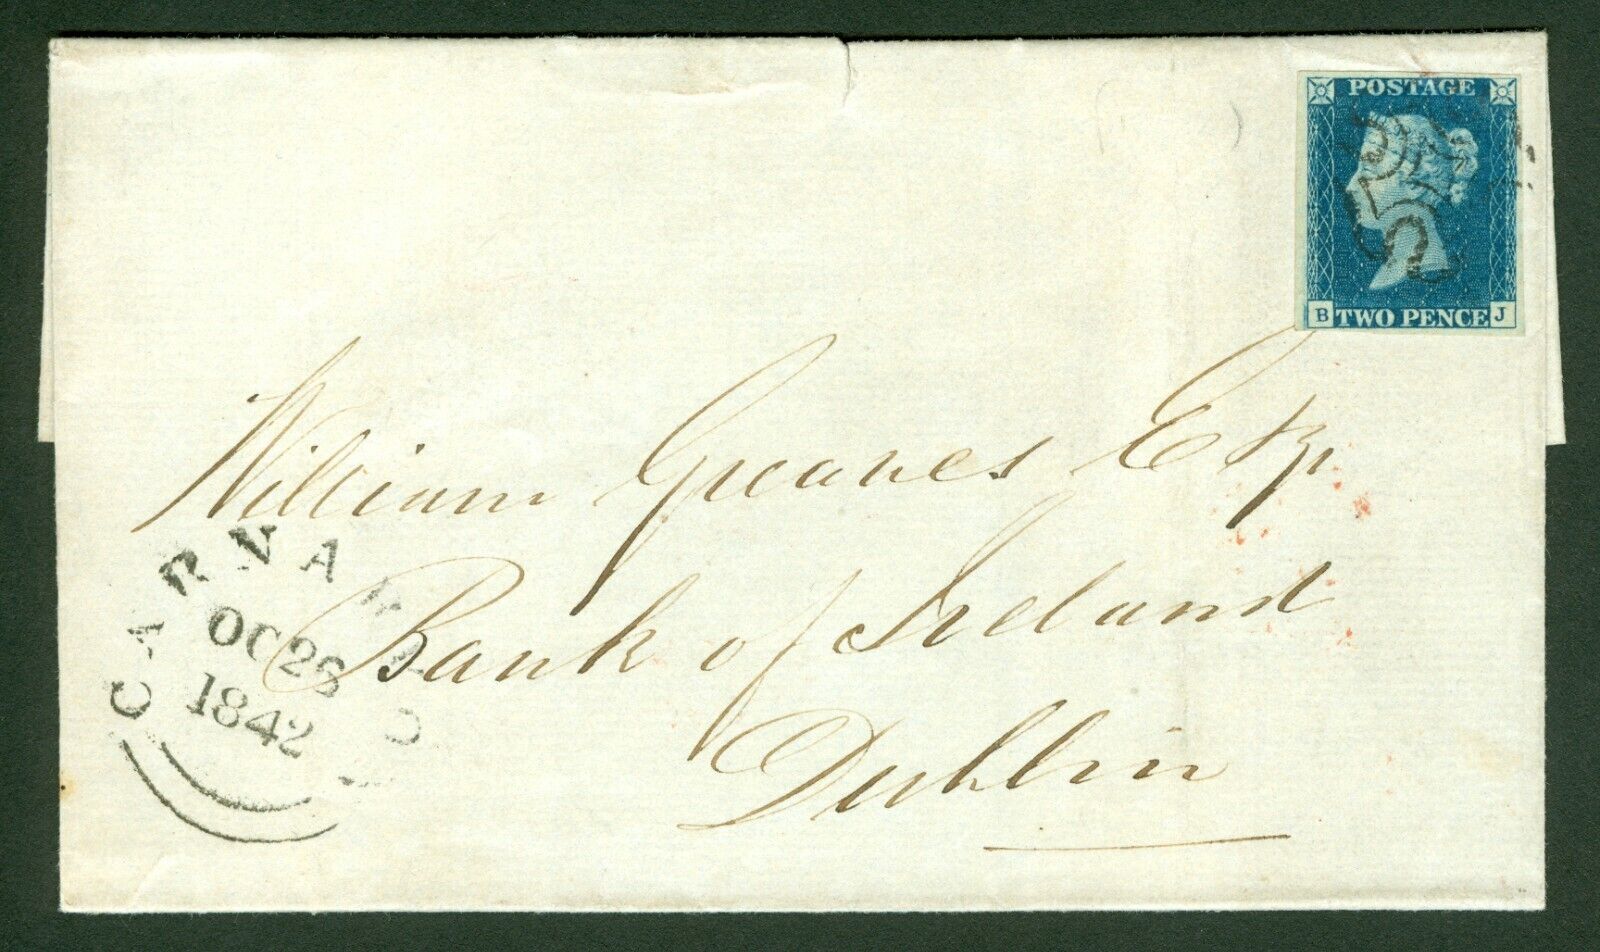 POSTAGE
B TWO PENCE J
William Greaves Esqr
Bank of Ireland
Dublin
OC 26
1842